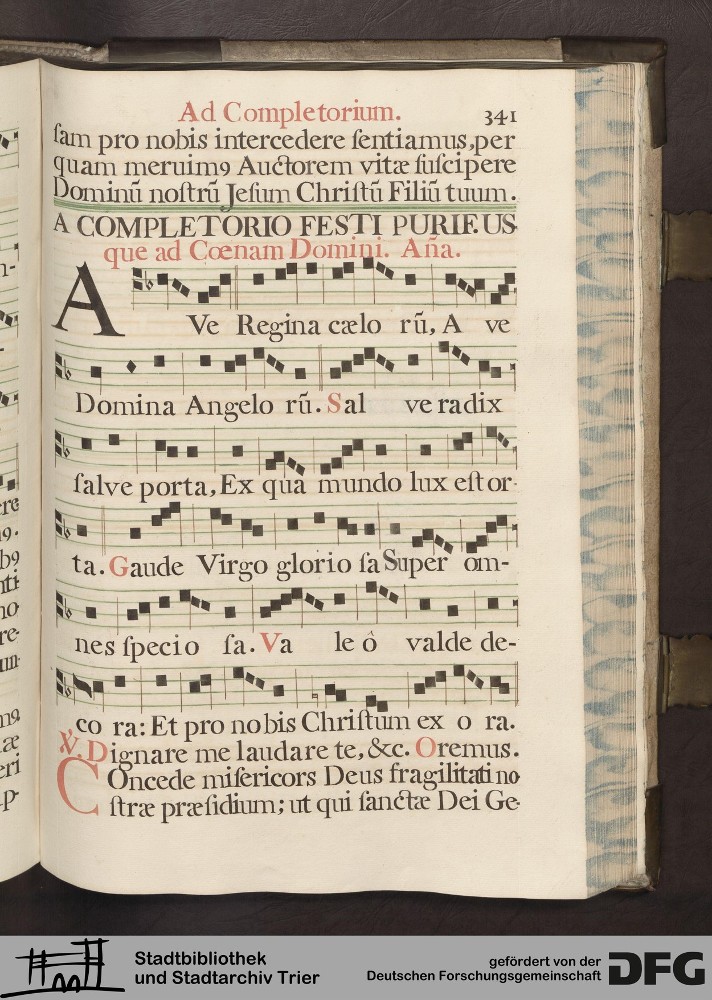 Ad Completorium. 341
ſam pro nobis intercedere ſentiamus, per
quam meruimꝰ Auctorem vitæ ſuſcipere
Dominū noſtrū Jeſum Chriſtū Filiū tuum.
A COMPLETORIO FESTI PURIF. US-
que ad Cœnam Domini. Aña.
A Ve Regina cælo rū, A ve
Domina Angelo rū. Sal ve radix
ſalve porta, Ex qua mundo lux eſt or-
ta. Gaude Virgo glorio ſa Super om-
nes ſpecio ſa. Va le ô valde de-
co ra: Et pro nobis Chriſtum ex o ra.
℣. Dignare me laudare te, &c. Oremus.
Concede miſericors Deus fragilitati no
ſtræ præſidium; ut qui ſanctæ Dei Ge-
Stadtbibliothek
und Stadtarchiv Trier
gefördert von der
Deutschen Forschungsgemeinschaft
DFG